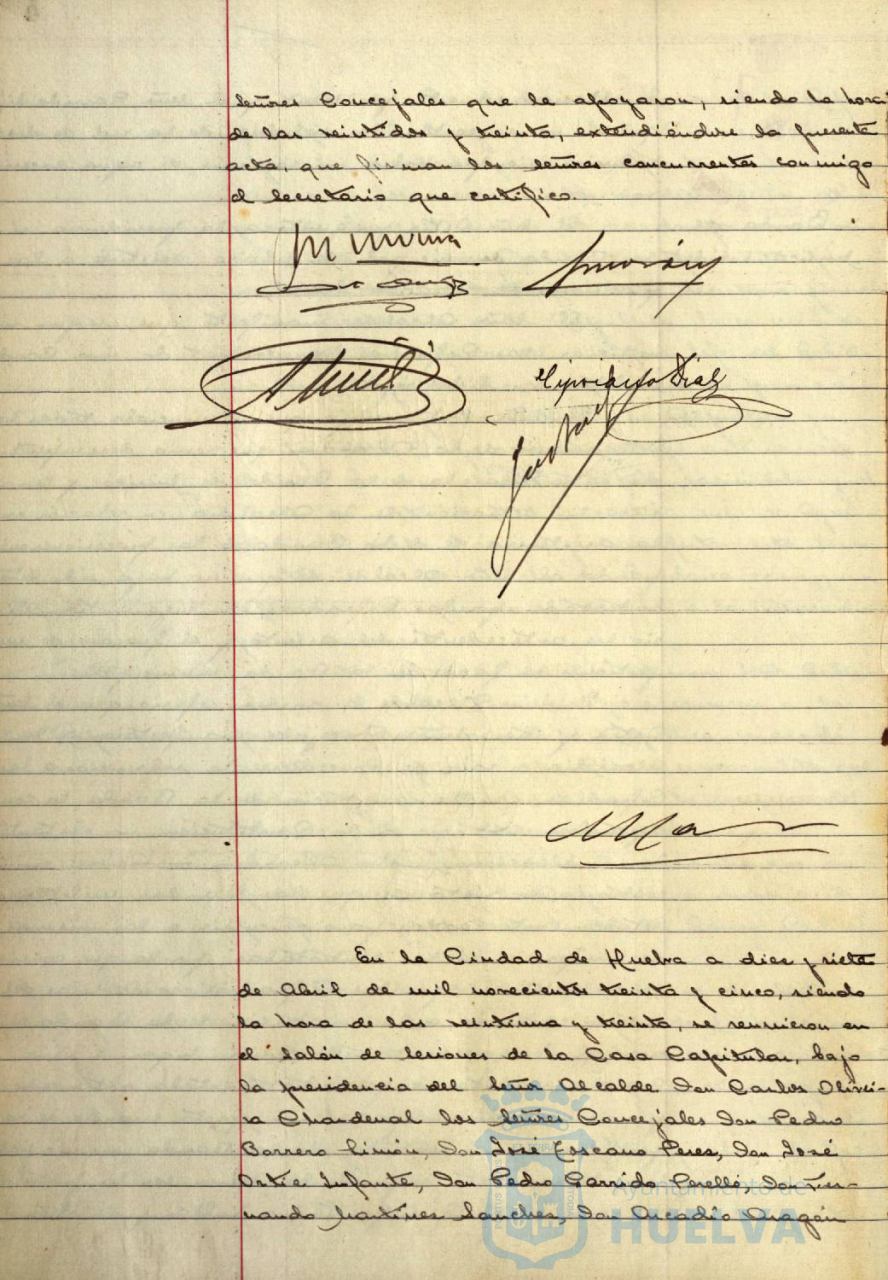 señores Concejales que le apoyaron, siendo la hora
de las veintidos y treinta, extendiéndose la presente
acta, que firman los señores concurrentes conmigo
el secretario que certifico.
Cipriano Diaz
En la Ciudad de Huelva a diez y siete
de Abril de mil novecientos treinta y cinco, siendo
la hora de las veintiuna y treinta, se reunieron en
el Salón de sesiones de la Casa Capitular, bajo
la presidencia del Señor Alcalde Don Carlos Olivei-
ra Chardenal los Señores Concejales Don Pedro
Borrero Limón, Don José Toscano Peres, Don José
Ortiz Infante, Don Pedro Garrido Perelló, Don Fer-
nando Martínes Sanches, Don Arcadio Aragón
Ayuntamiento de
HUELVA